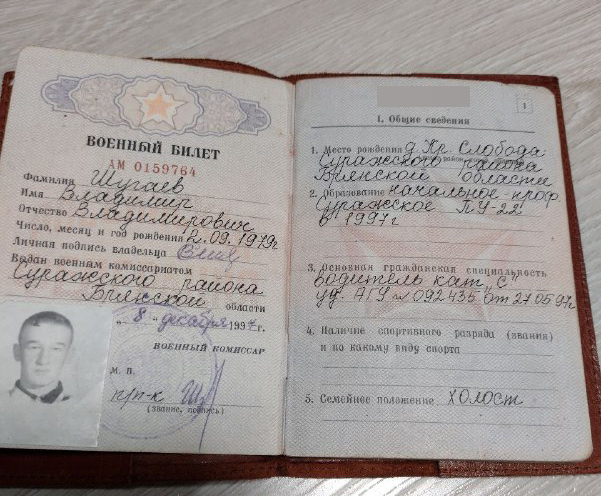 ВОЕННЫЙ БИЛЕТ
АМ 0159764
Фамилия Шугаев
Имя Владимир
Отчество Владимирович
Число, месяц и год рождения 12.09.1979г
Личная подпись владельца
Выдан военным комиссариатом
Суражского района
Брянской области
„ 8 " декабря 1997г.
ВОЕННЫЙ КОМИССАР
М. П.
п/п-к
(звание, подпись)
1
I. Общие сведения
1. Место рождения д. Кр. Слобода
Суражского района
Брянской области
2. Образование начальное проф
Суражское ПУ-22
в 1997г
3. Основная гражданская специальность
водитель кат. „С"
уд. АГУ № 092435 от 27.05.97г
4. Наличие спортивного разряда (звания)
и по какому виду спорта
5. Семейное положение холост